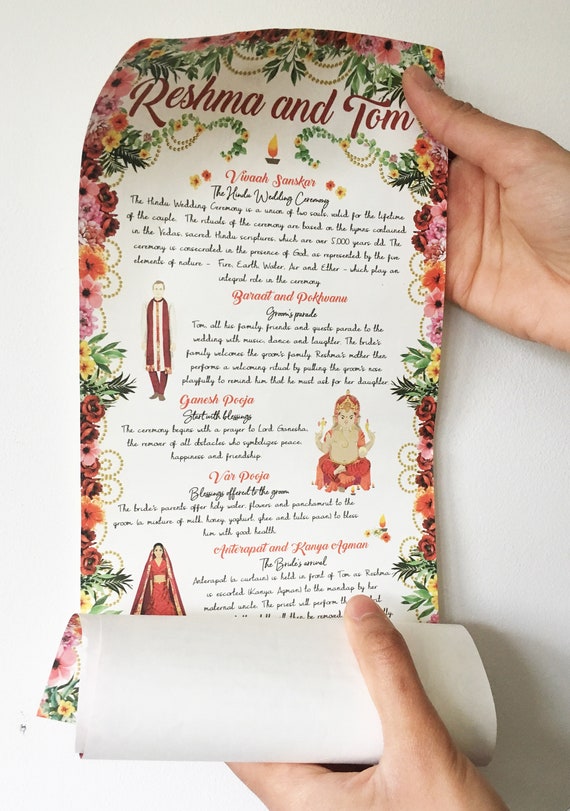 Reshma and Tom
Vivaah Sanskar
The Hindu Wedding Ceremony
The Hindu Wedding Ceremony is a union of two souls, valid for the lifetime
of the couple. The rituals of the ceremony are based on the hymns contained
in the Vedas, sacred Hindu scriptures, which are over 5,000 years old. The
ceremony is consecrated in the presence of God, as represented by the five
elements of nature - Fire, Earth, Water, Air and Ether - which play an
integral role in the ceremony.
Baraat and Pokhvanu
Groom's parade
Tom, all his family, friends and guests parade to the
wedding with music, dance and laughter. The bride's
family welcomes the groom's family. Reshma's mother then
performs a welcoming ritual by pulling the groom's nose
playfully to remind him that he must ask for her daughter.
Ganesh Pooja
Start with blessings
The ceremony begins with a prayer to Lord Ganesha,
the remover of all obstacles who symbolizes peace,
happiness and friendship.
Var Pooja
Blessings offered to the groom
The bride's parents offer holy water, flowers and panchamrut to the
groom (a mixture of milk, honey, yoghurt, ghee and tulsi paan) to bless
him with good health.
Anterapat and Kanya Agman
The Bride's arrival
Anterapat (a curtain) is held in front of Tom as Reshma
is escorted (Kanya Agman) to the mandap by her
maternal uncle. The priest will perform the
then be removed